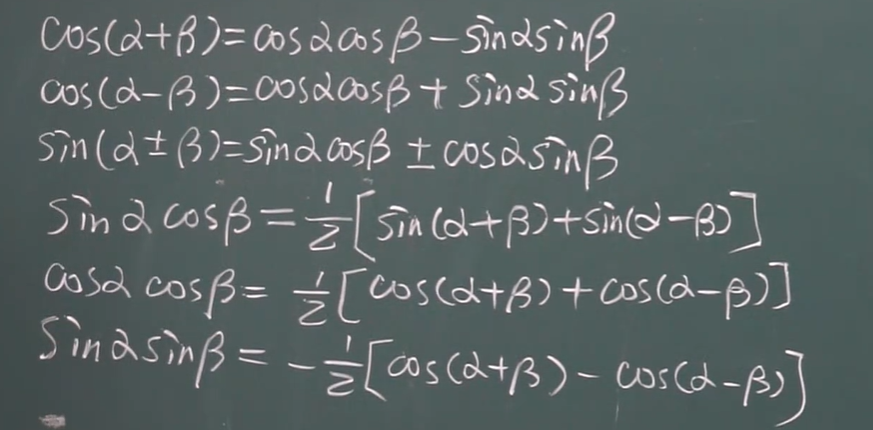 cos(α+β)=cosαcosβ−sinαsinβ
cos(α−β)=cosαcosβ+sinαsinβ
sin(α±β)=sinαcosβ±cosαsinβ
sinαcosβ=1/2[sin(α+β)+sin(α−β)]
cosαcosβ=1/2[cos(α+β)+cos(α−β)]
sinαsinβ=−1/2[cos(α+β)−cos(α−β)]